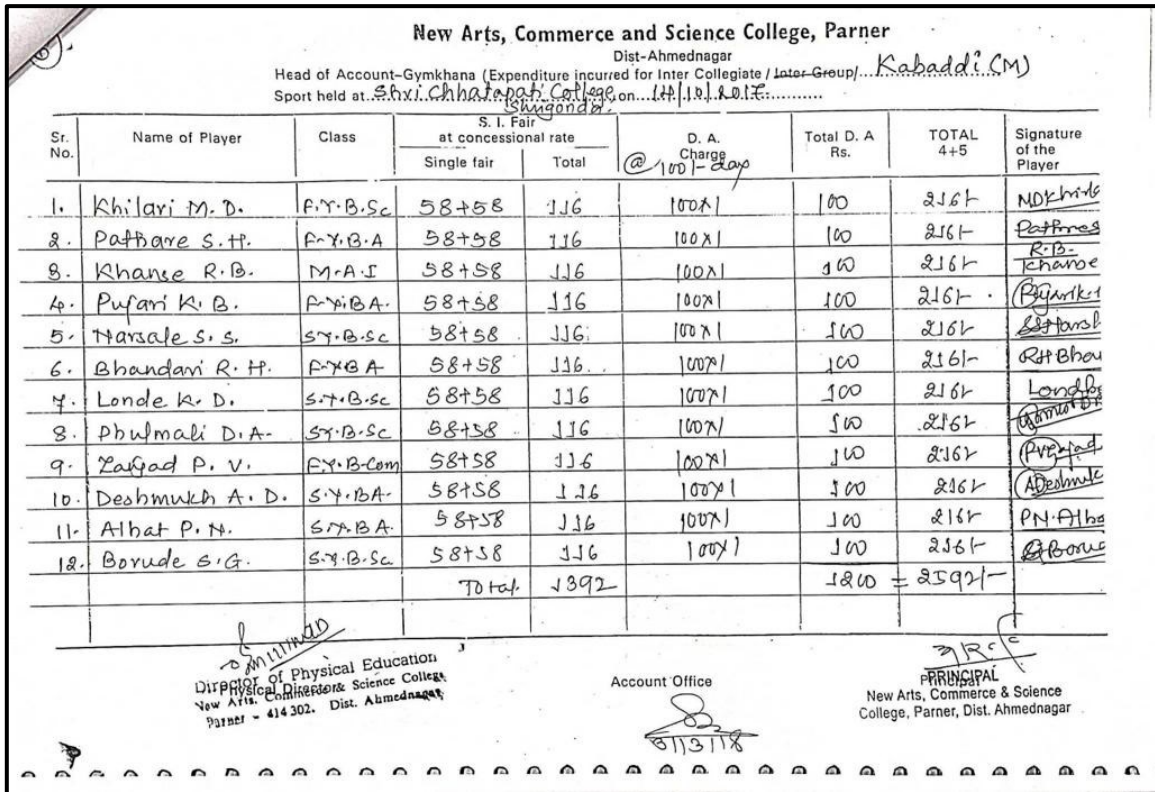 New Arts, Commerce and Science College, Parner
Dist-Ahmednagar
Head of Account-Gymkhana (Expenditure incurred for Inter Collegiate / Inter Group/ Kabaddi (M)
Sport held at Shri Chhatapati College, on 14/10/2017
Shrigonda.
Sr. No. Name of Player Class S. I. Fair at concessional rate Single fair Total D. A. Charge @ 100/- day Total D. A Rs. TOTAL 4+5 Signature of the Player
1. Khilari M. D. F.Y.B.Sc 58+58 116 100x1 100 216/-
2. Pathare S. H. F.Y.B.A 58+58 116 100x1 100 216/-
3. Khanse R.B. M.A.I 58+58 116 100x1 100 216/- R.B. Khanse
4. Pujari K. B. F.Y.BA. 58+58 116 100x1 100 216/-
5. Harsale S. S. S.Y.B.Sc 58+58 116 100x1 100 216/-
6. Bhandari R. H. F.Y.B A 58+58 116 100x1 100 216/- RH Bha
7. Londe K. D. S.Y.B.Sc 58+58 116 100x1 100 216/-
8. Phulmali D.A. S.Y.B.Sc 58+58 116 100x1 100 216/-
9. P. V. F.Y.B.Com 58+58 116 100x1 100 216/-
10. Deshmukh A. D. S.Y.BA. 58+58 116 100x1 100 216/- ADeshmuk
11. Albat P. N. S.Y.BA. 58+58 116 100x1 100 216/- PN.Alba
12. Borude S.G. S.Y.B.Sc. 58+58 116 100x1 100 216/-
Total 1392 1200 = 2592/-
Director of Physical Education
Physical Director
New Arts, Commerce & Science College
Parner - 414 302. Dist. Ahmednagar
Account Office
31/3/18
Principal
PRINCIPAL
New Arts, Commerce & Science
College, Parner, Dist. Ahmednagar